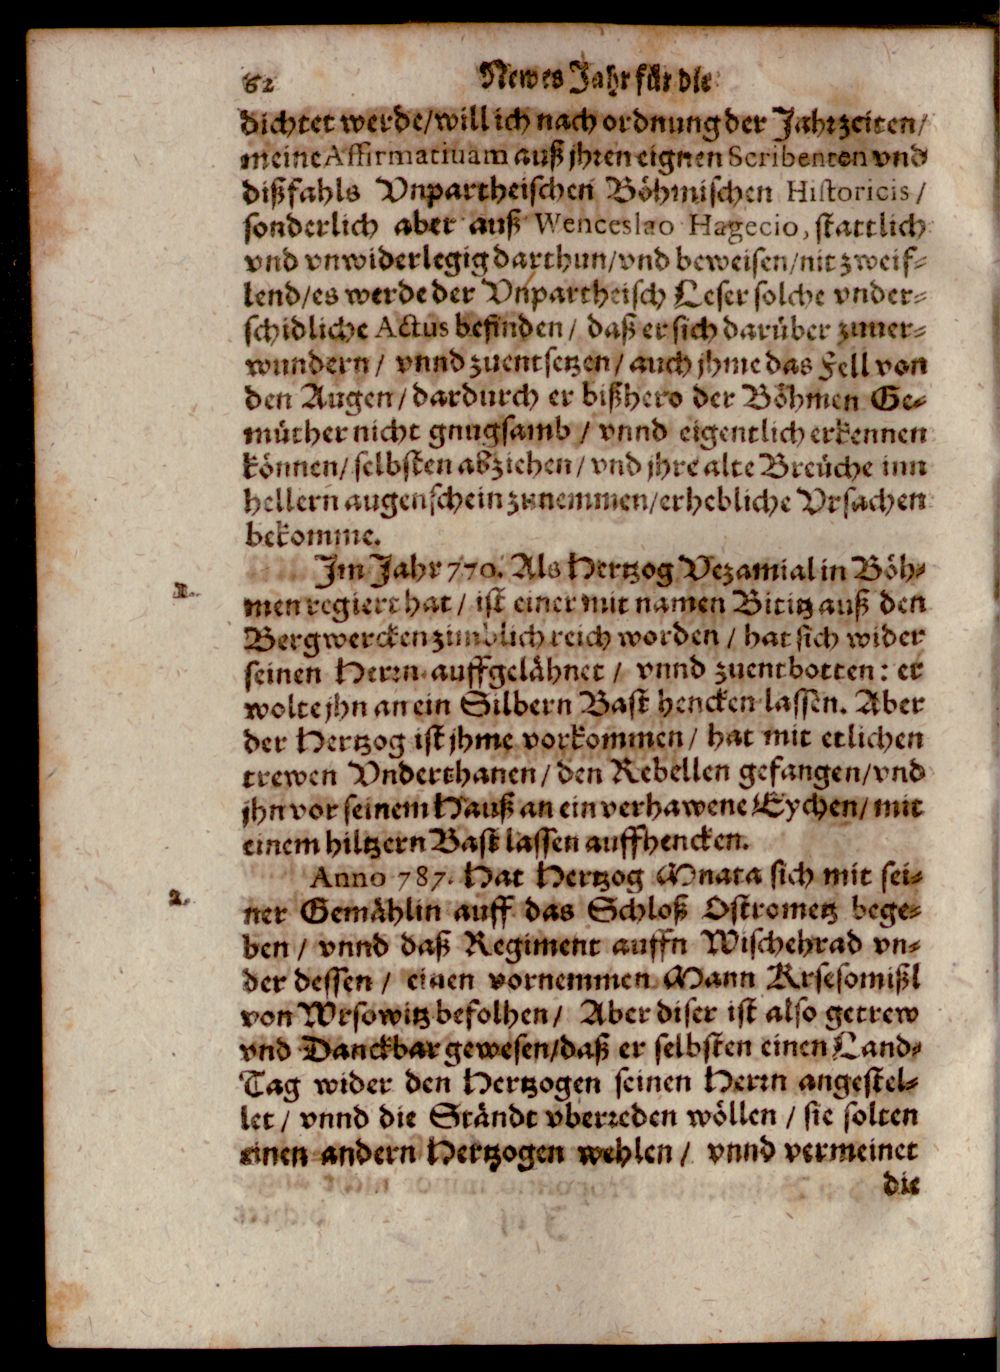 62 Newes Jahr für die
dichtet werde/will ich nach ordnung der Jahrzeiten/
meine Affirmatiuam auß jhren eignen Scribenten vnd
dißfahls Vnpartheischen Böhmischen Historicis/
sonderlich aber auß Wenceslao Hagecio, stattlich
vnd vnwiderlegig darthun/vnd beweisen/nit zweif-
lend/es werde der Vnpartheisch Leser solche vnder-
schidliche Actus befinden/ daß er sich darüber zuuer-
wundern/ vnnd zuentsetzen/ auch jhme das Fell von
den Augen/dardurch er bißhero der Böhmen Ge-
müther nicht gnugsamb/ vnnd eigentlich erkennen
können/selbsten abziehen/vnd jhre alte Breüche inn
hellern augenschein zunemmen/erhebliche Vrsachen
bekomme.
Im Jahr 770. Als Hertzog Vezamial in Böh-
1. men regiert hat/ ist einer mit namen Bititz auß den
Bergwercken zimblich reich worden/ hat sich wider
seinen Herrn auffgelähnet/ vnnd zuentbotten: er
wolte jhn an ein Silbern Bast hencken lassen. Aber
der Hertzog ist jhme vorkommen/ hat mit etlichen
trewen Vnderthanen/den Rebellen gefangen/vnd
jhn vor seinem Hauß an ein verhawene Eychen/ mit
einem hiltzern Bast lassen auffhencken.
Anno 787. Hat Hertzog Mnata sich mit sei-
2. ner Gemählin auff das Schloß Ostrometz bege-
ben/ vnnd daß Regiment auffn Wischehrad vn-
der dessen/ einen vornemmen Mann Krsesomißl
von Wrsowitz befolhen/ Aber diser ist also getrew
vnd Danckbar gewesen/daß er selbsten einen Land-
Tag wider den Hertzogen seinen Herrn angestel-
let/ vnnd die Ständt vberreden wöllen/ sie solten
einen andern Hertzogen wehlen/ vnnd vermeinet
die